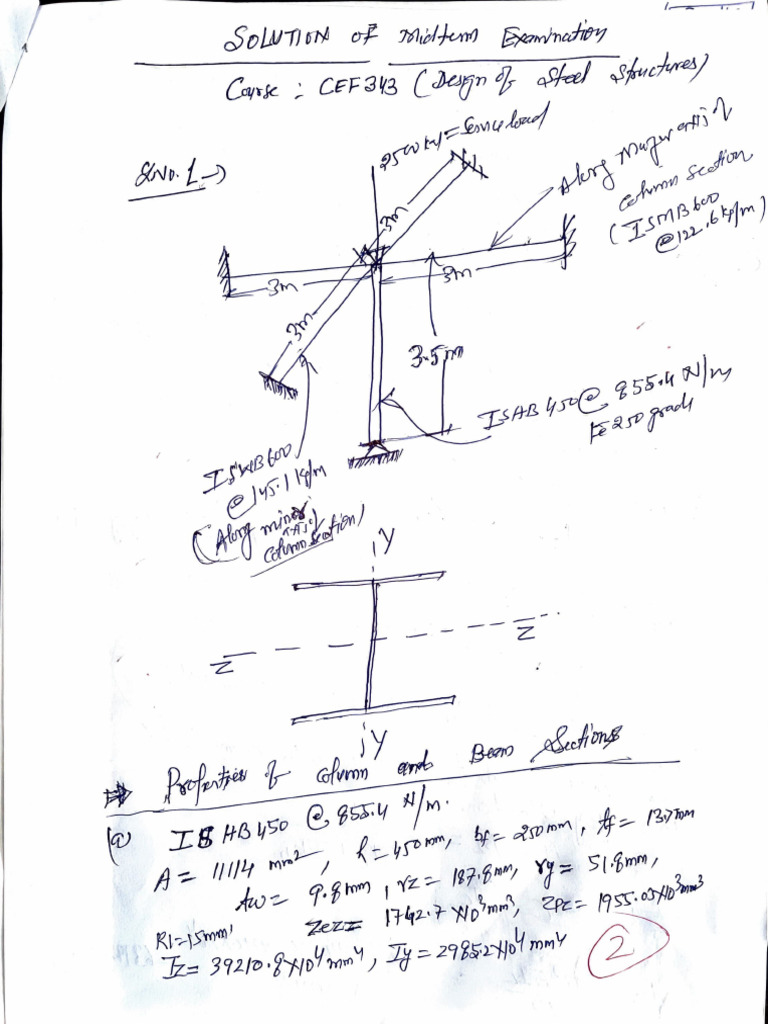 SOLUTION of Midterm Examination
Course: CEF343 (Design of Steel Structures)
S.No. 1 →
2500 kN = Service load
Along Major axis of
column section
(ISMB600
@122.6kg/m)
3m
3m
3m
3m
3.5m
ISHB 450@ 855.4 N/m
Fe250 grade
ISWB600
@145.1 kg/m
(Along minor
axis of
column section)
Y
Z
Z
Y
⇒ Properties of column and Beam Sections
(a) ISHB450 @ 855.4 N/m.
A = 11114 mm², h = 450mm, bf = 250mm, tf = 13.7mm
tw = 9.8mm, rz = 187.8mm, ry = 51.8mm,
R1=15mm, Zez = 1742.7×10³mm³, Zpz = 1955.03×10³mm³
Iz = 39210.8×10⁴mm⁴, Iy = 2985.2×10⁴mm⁴
2